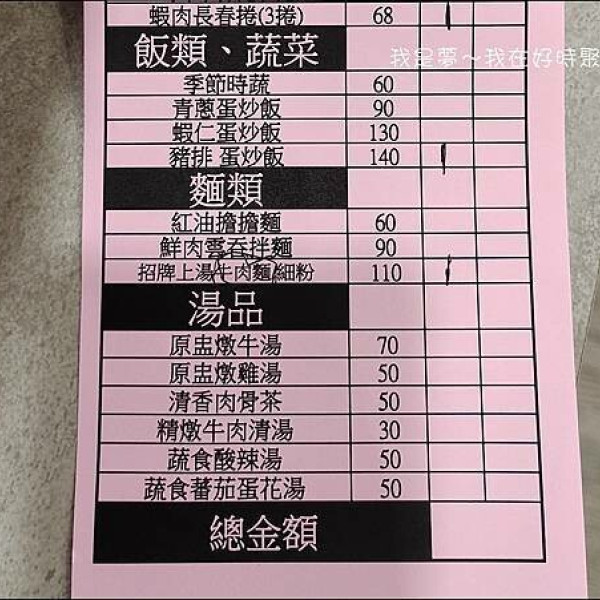 蝦肉長春捲(3捲) 68
飯類、蔬菜
我是夢～我在好時聚
季節時蔬 60
青蔥蛋炒飯 90
蝦仁蛋炒飯 130
豬排 蛋炒飯 140
麵類
紅油擔擔麵 60
鮮肉雲吞拌麵 90
招牌上湯牛肉麵/細粉 110
湯品
原盅燉牛湯 70
原盅燉雞湯 50
清香肉骨茶 50
精燉牛肉清湯 30
蔬食酸辣湯 50
蔬食蕃茄蛋花湯 50
總金額